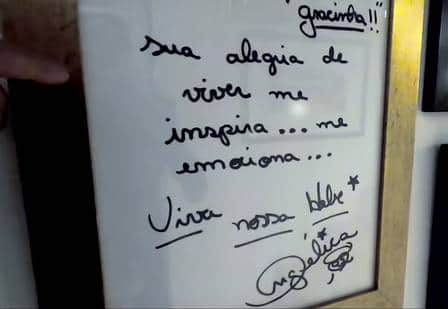 gracinha!!"
Sua alegria de
viver me
inspira... me
emociona...
Viva nossa Hebe
Angélica